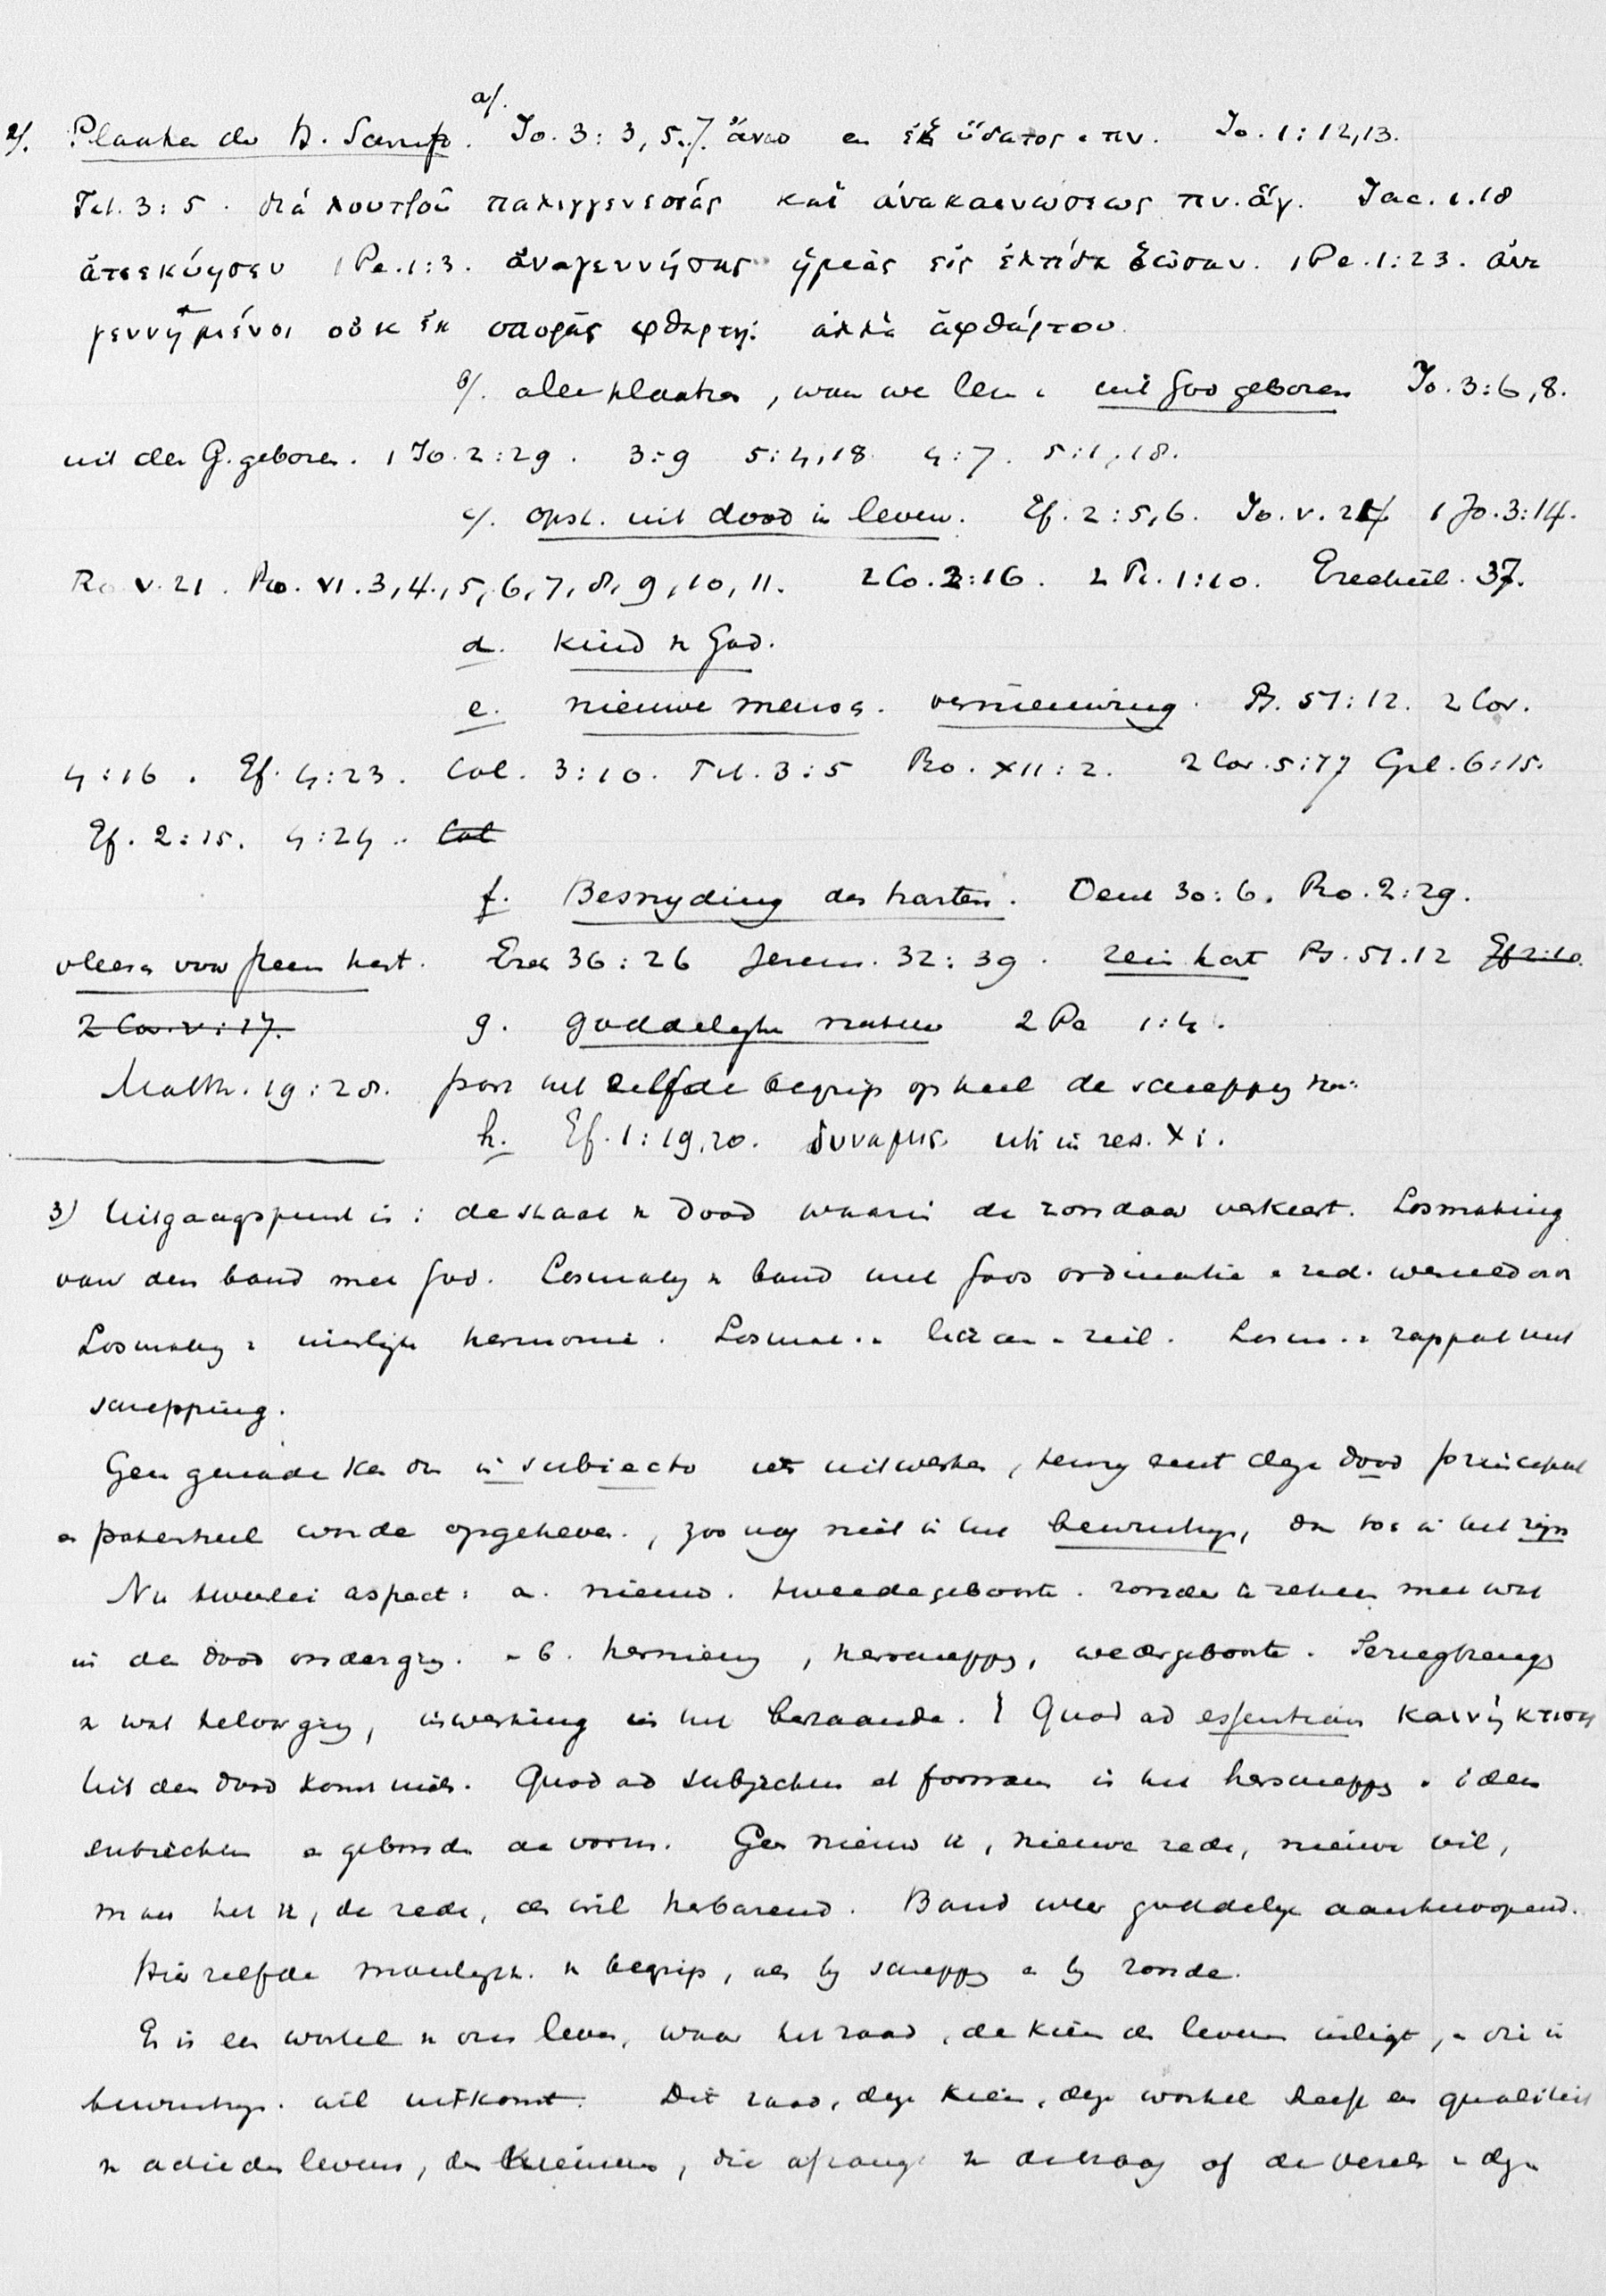 2/. Plaatsen der H. Schrift. a/. Jo. 3:3, 5. 7. ἄνω en ἐξ ὕδατος . πν. Jo. 1:12,13.
Tit. 3:5. διά λουτροῦ παλιγγενεσίας καὶ ἀνακαινώσεως πν. ἅγ. Jac. 1.18
ἀπεκύησεν 1 Pe. 1:3. ἀναγεννήσας ἡμᾶς εἰς ἐλπίδα ζῶσαν. 1 Pe. 1:23. ἀνα
γεννημένοι οὐκ ἐκ σπορᾶς φθαρτῆς ἀλλὰ ἀφθάρτου
b/. alle plaatsen, waar we lezen . uit God geboren Jo. 3:6,8.
uit den G. geboren. 1 Jo. 2:29. 3:9 5:4,18 4:7. 5:1,18.
c/. opst. uit dood in leven. Ef. 2:5,6. Jo. v. 24 1 Jo. 3:14.
Ro v. 21. Ro. VI. 3,4,5,6,7,8,9,10,11. 2 Co. 2:16. 2 Ti. 1:10. Ezechiël. 37.
d. kind v God.
e. nieuwe mensch. vernieuwing. Ps. 51:12. 2 Cor.
4:16. Ef. 4:23. Col. 3:10. Tit. 3:5 Ro. XII:2. 2 Cor. 5:17 Gal. 6:15.
Ef. 2:15. 4:24. Col
f. Besnyding des harten. Deut 30:6. Ro. 2:29.
vleesch voor steen hart. Ezech 36:26 Jerem. 32:39. rein hart Ps. 51.12 Ef 2:10.
2 Cor. v:17. g. goddelyke natuur 2 Pe 1:4.
Matth. 19:28. past het zelfde begrip op heel de schepping toe.
h. Ef. 1:19,20. δυναμις. uit in res. Xi.
3) Uitgangspunt is: de staat v dood waarin de zondaar verkeert. Losmaking
van den band met God. Losmaking v band met Gods ordinantie . red. wereldorde
Losmaking v innerlijke harmonie. Losmak. v lichaam . ziel. Losm. v rapport met
schepping.
Geen genade kan dus in subiecto iets uitwerken, tenzy eerst deze dood principieel
en potentieel worde opgeheven, zoo nog niet in het bewustzyn, dan toch in het zyn
Nu tweeërlei aspect: a. nieuw. tweede geboorte. zonder te rekenen met wat
in den dood onderging. b. hernieuwing, herschepping, wedergeboorte. Terugbrenging
v wat teloor ging, inwerking in het bestaande. Quod ad essentiam καινὴ κτισις
Uit den dood komt niets. Quod ad subjectum et formam is het herschepping . idem
subiectum en gebonden de vorm. Geen nieuw ik, nieuwe rede, nieuwe wil,
maar het ik, de rede, de wil herbarend. Band weer goddelyk aanknoopend.
Hier zelfde moeilykh. v begrip, als by schepping en by zonde.
Er is een wortel v ons leven, waar het zaad, de kiem des levens inligt, en die in
bewustzyn. wil uitkomt. Dit zaad, deze kiem, deze wortel heeft een qualiteit
v actie des levens, des kiemens, die afhangt v de of de v deze